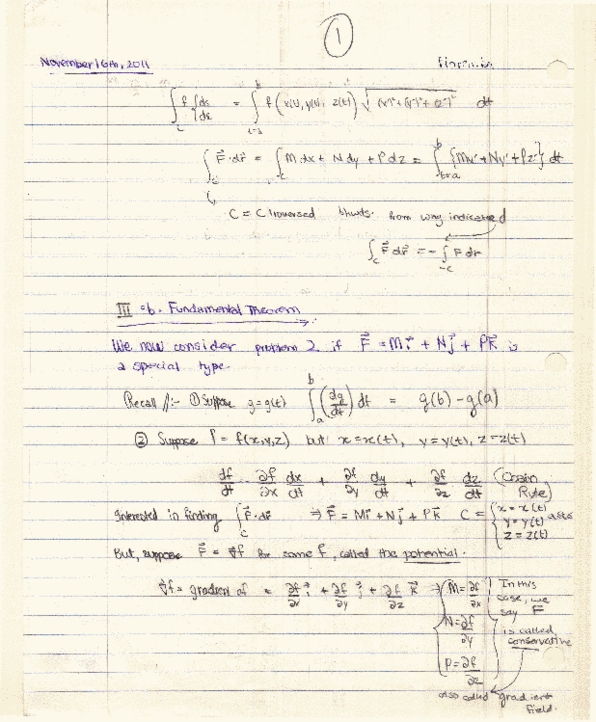 1
November 16th, 2011
∫_C f ds = ∫_{t=a}^{b} f(x(t), y(t), z(t)) √((x')² + (y')² + (z')²) dt
∫_C F⃗·dr⃗ = ∫_C M dx + N dy + P dz = ∫_{t=a}^{b} {Mx' + Ny' + Pz'} dt
C = C traversed bkwds. from way indicated
∫_C F⃗ dr⃗ = - ∫_{-C} F dr
III ob. Fundamental Theorem
We now consider problem 2 if F⃗ = Mi⃗ + Nj⃗ + Pk⃗ is
a special type
Recall //:- ① Suppose g = g(t) ∫_a^b (dg/dt) dt = g(b) - g(a)
② Suppose f = f(x,y,z) but x = x(t), y = y(t), z = z(t)
df/dt = ∂f/∂x dx/dt + ∂f/∂y dy/dt + ∂f/∂z dz/dt (Chain Rule)
Interested in finding ∫_C F⃗·dr⃗ ⇒ F⃗ = Mi⃗ + Nj⃗ + Pk⃗ C = { x = x(t) y = y(t) z = z(t) a≤t≤b
But, suppose F⃗ = ∇⃗f for some f, called the potential.
∇⃗f = gradient of = ∂f/∂x i⃗ + ∂f/∂y j⃗ + ∂f/∂z k⃗ ⇒ { M = ∂f/∂x
N = ∂f/∂y
P = ∂f/∂z
In this
case, we
say F⃗
is called
conservative
also called gradient
field.